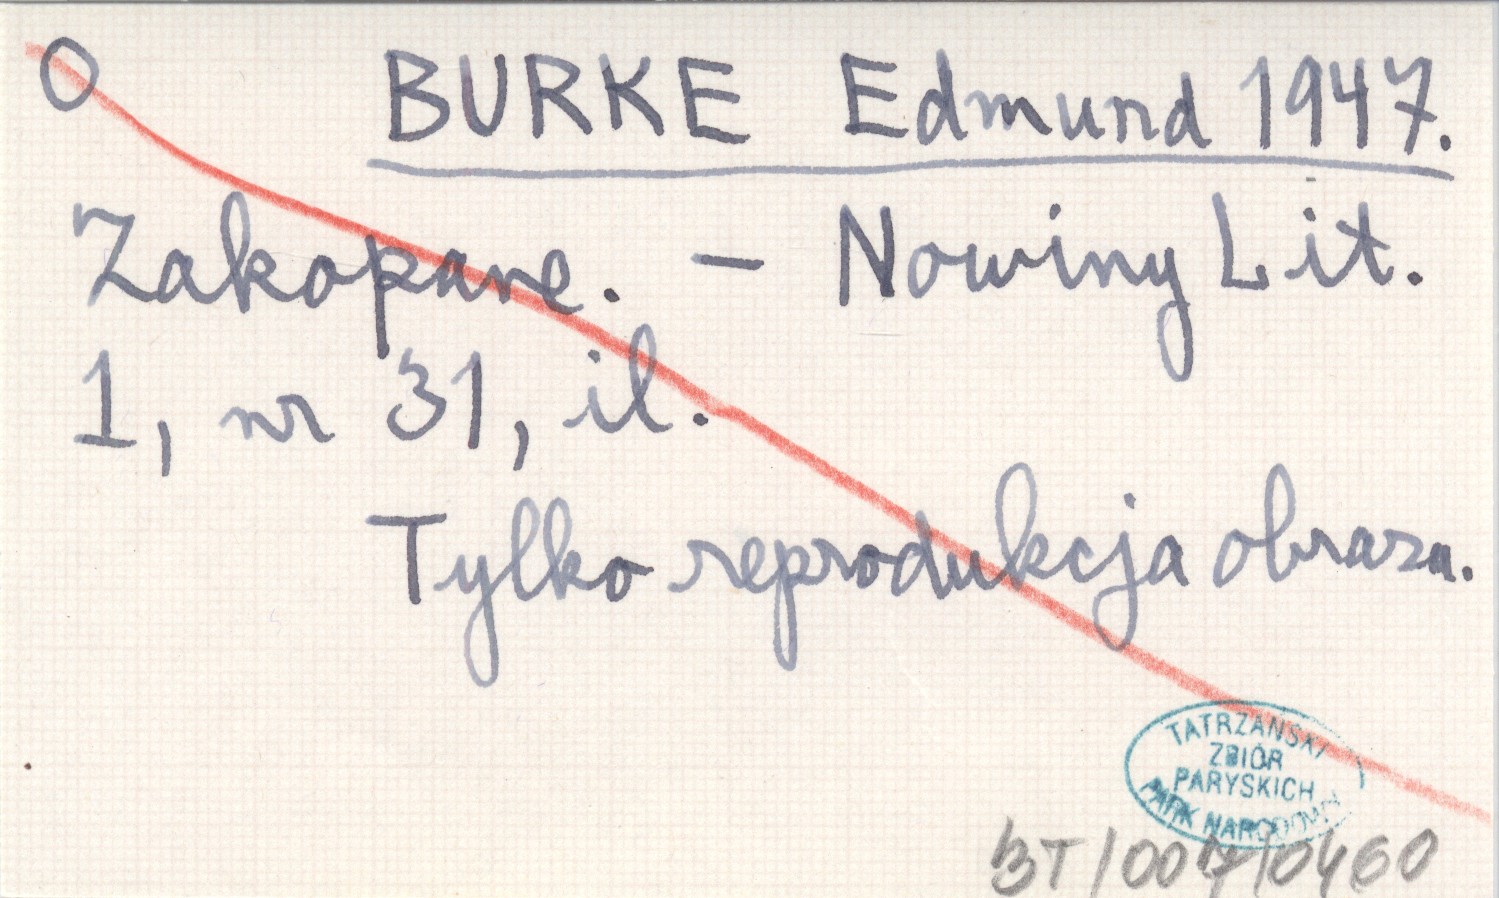 O BURKE Edmund 1947.
Zakopane. — Nowiny Lit.
1, nr 31, il.
Tylko reprodukcja obrazu.
TATRZAŃSKI
ZBIÓR
PARYSKICH
PARK NARODOWY
BT/007/0460